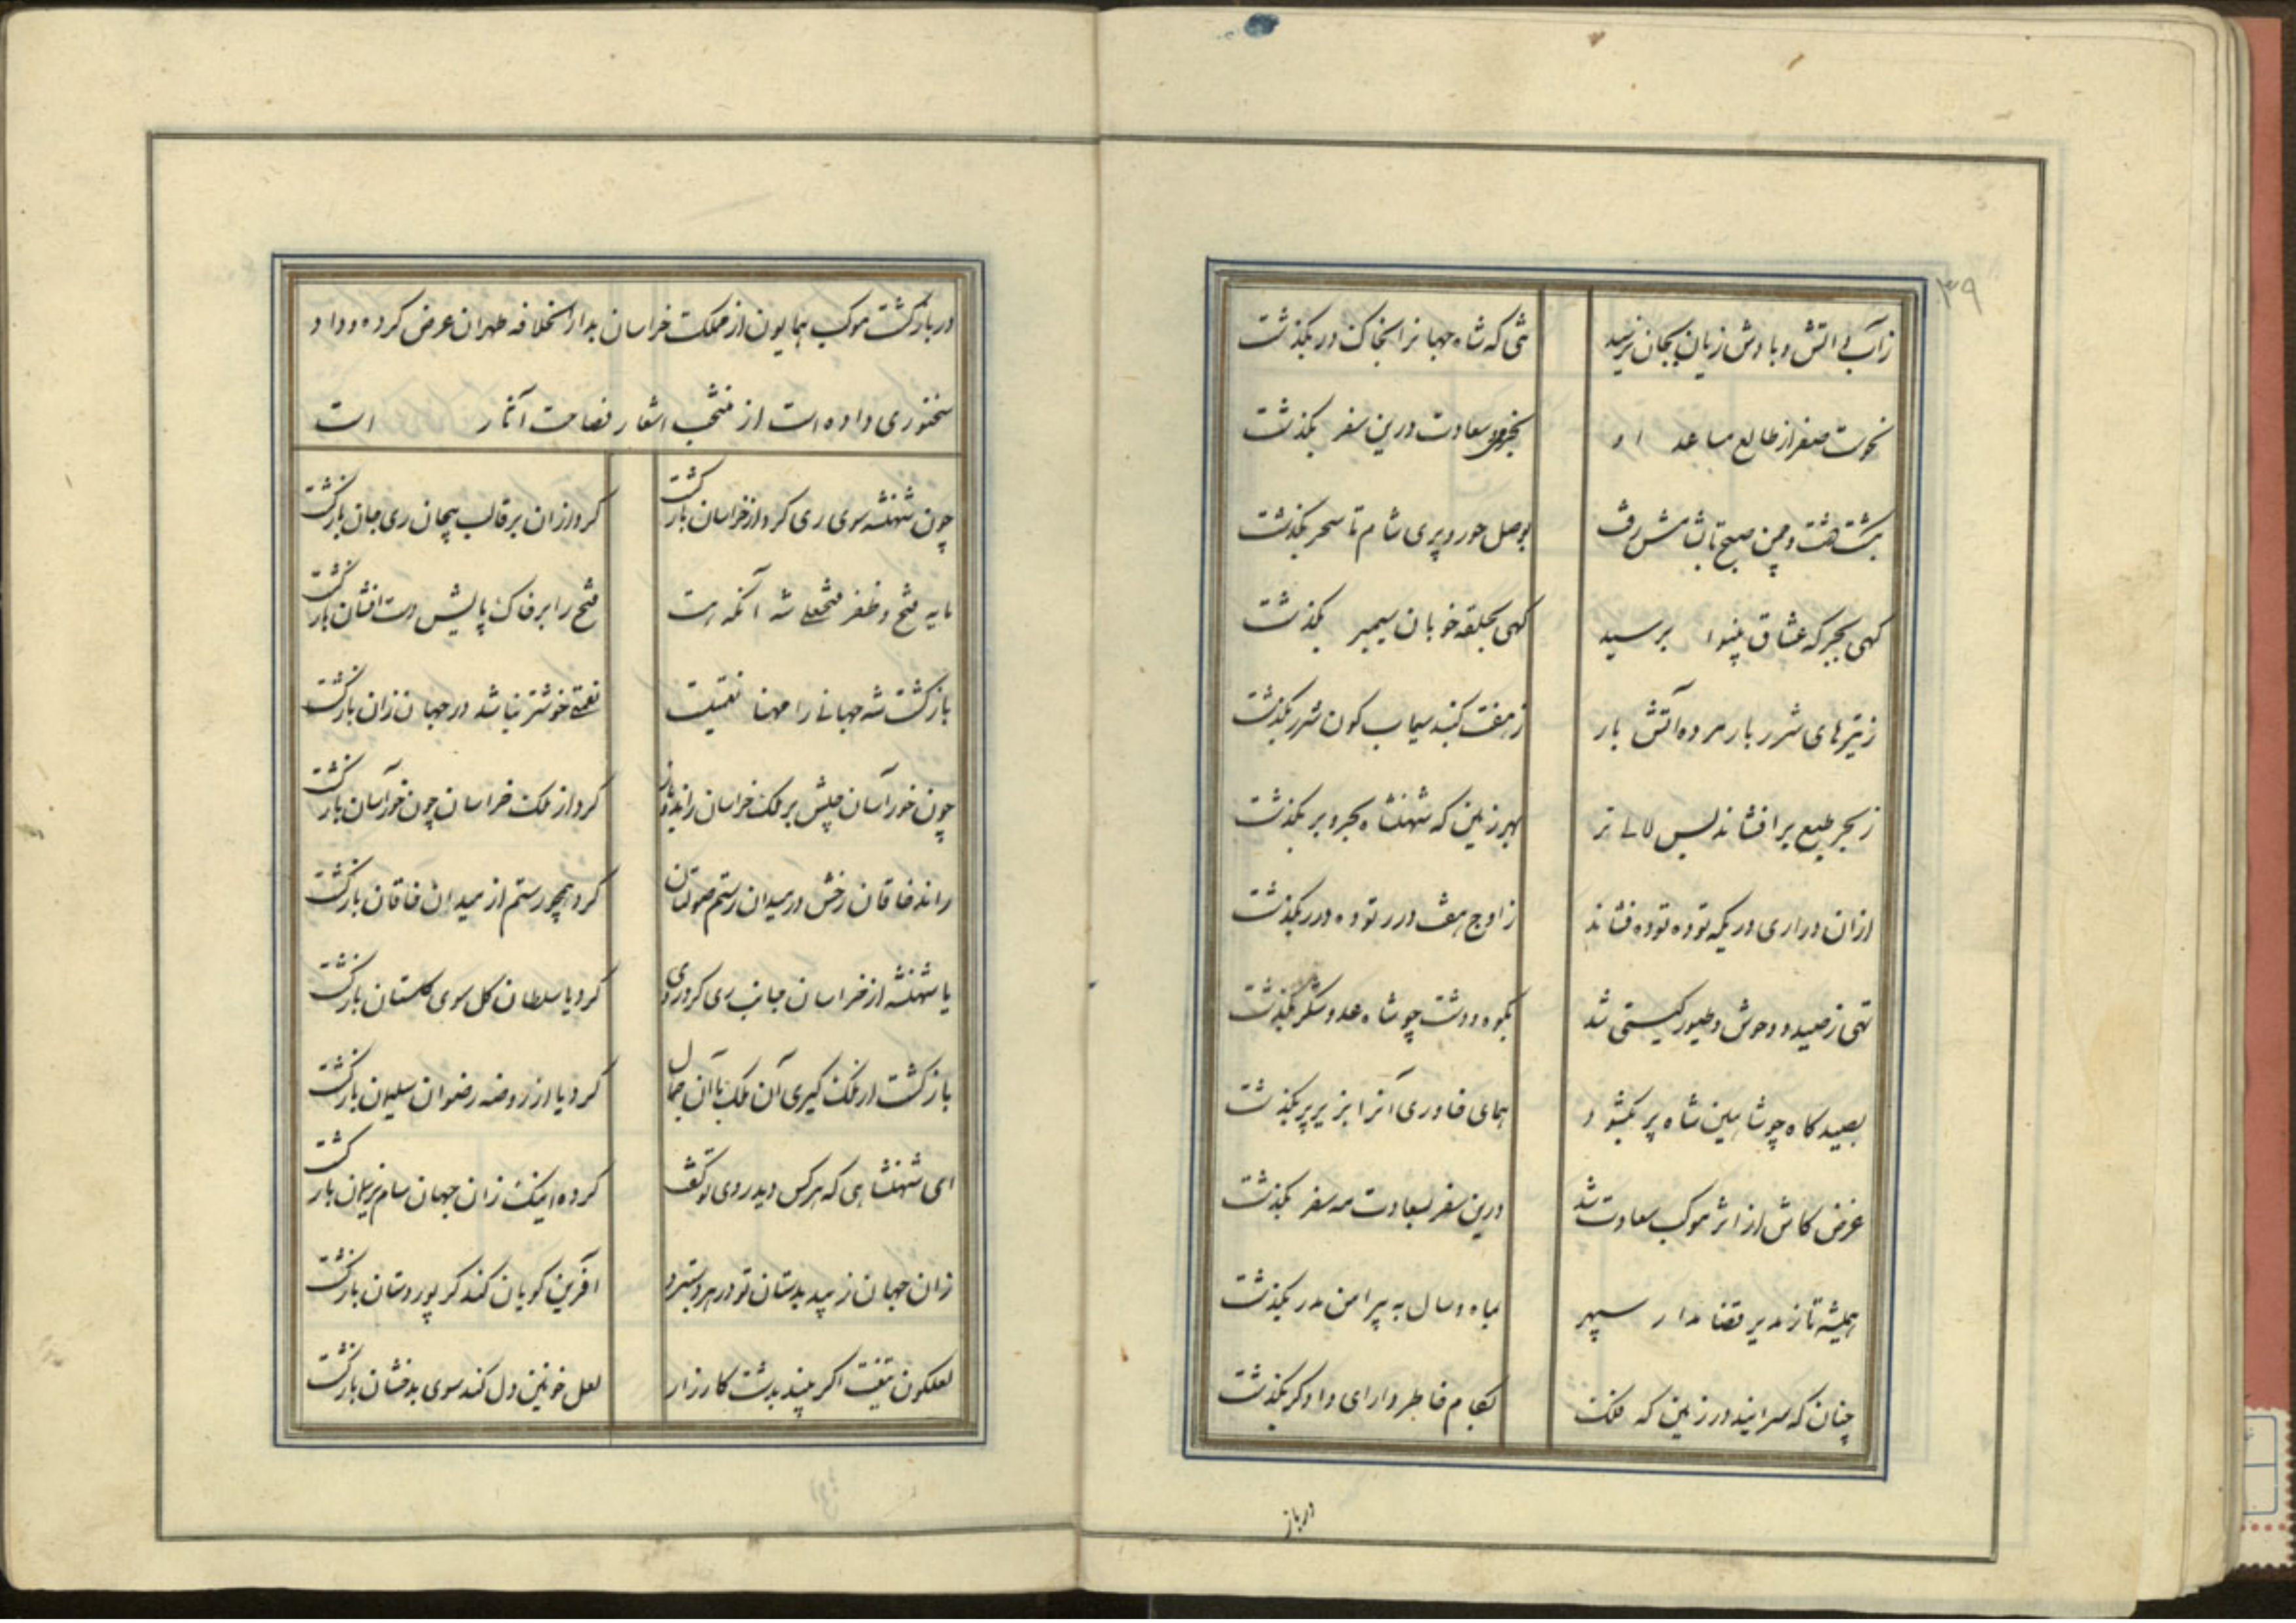 ۳۹
زآب بی آتش و بادش زیان بجان نرسید
شی که شاه جهانرا بخاک در بگذشت
نحوست صفر از طالع مساعد او
سعادت درین سفر بگذشت
بگشت دشت و چمن صبح تا بشامش رفت
بوصل حور و پری شام تا سحر بگذشت
کهی بجرکه عشاق بینوا برسید
کهی بحلقه خوبان سیمبر بگذشت
ز تیرهای شرر بار مرده آتش بار
ز هفت کنبد سیماب کون شرر بگذشت
ز بحر طبع برافشاند بس لالی تر
بهر زمین که شهنشاه بحر و بر بگذشت
ازان دراری در یکه توده توده فشاند
ز اوج هفت درر توده درر بگذشت
تهی ز صید و وحوش و طیور کیتی شد
بکوه و دشت چو شاه عدو شکر بگذشت
بصیدکاه چو شاهین شاه پر بکشود
همای خاوری آنرا بزیر پر بگذشت
غرض کاش از اثر موکب سعادت شد
درین سفر بسعادت مه سفر بگذشت
همیشه تا ز مدیر قضا مدار سپهر
بماه و سال به پیرامن مدر بگذشت
چنان که سرایند در زمین که ملک
بکام خاطر دارای دادکر بگذشت
درباز
در بازکشت موکب همایون از مملکت خراسان بدار الخلافه طهران عرض کرده و داد
سخنوری داده است از منتخب اشعار فصاحت آثار است
چون شهنشه سوی ری کرد از خراسان بازکشت
کرد ازان بر قالب بیجان ری جان بازکشت
مایه فتح و ظفر فتحعلی شه آنکه هست
فتح را بر خاک پایش دست افشان بازکشت
بازکشت شه جهانی را مهنا نعمتیست
نعمتی خوشتر نباشد در جهان زان بازکشت
چون خور آسان جیش بر ملک خراسان راند و باز
کرد از ملک خراسان چون خور آسان بازکشت
راند خاقان رخش در میدان رستم صولتان
کرد همچو رستم از میدان خاقان بازکشت
یا شهنشه از خراسان جانب ری کرد روی
کرد یا سلطان کل سوی کلستان بازکشت
بازکشت از ملک کیری آن ملک با آن جمال
کرد یا از روضه رضوان سلیمان بازکشت
ای شهنشاهی که هرکس دید روی تو کفت
کرده اینک زان جهان سام نریمان بازکشت
زان جهان زیبد بدستان تو در هر دستبرد
آفرین کویان کند کر پور دستان بازکشت
لعلکون تیغت اکر بیند بدشت کارزار
لعل خونین دل کند سوی بدخشان بازکشت